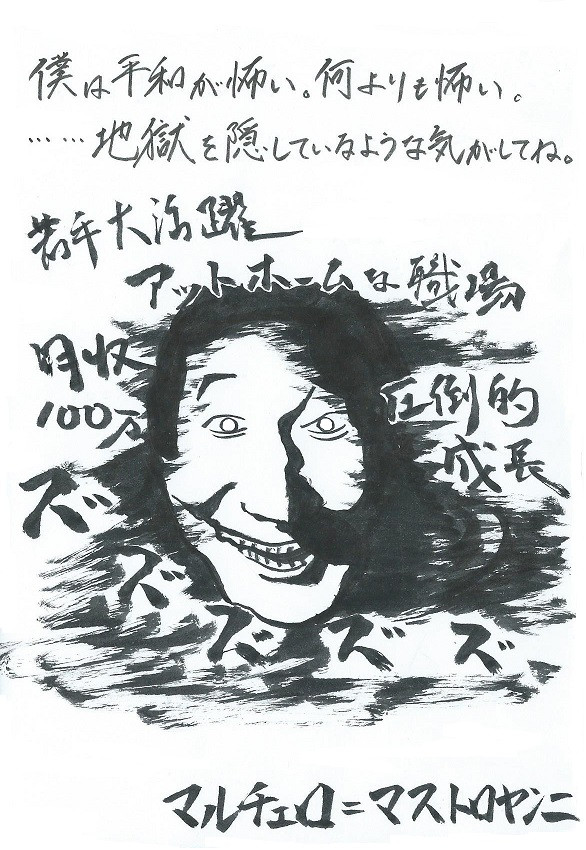 僕は平和が怖い。何よりも怖い。
……地獄を隠しているような気がしてね。
若手大活躍
アットホームな職場
月収
100万
圧倒的
成長
ズ
ズ
ズ
ズ
ズ
マルチェロ=マストロヤンニ